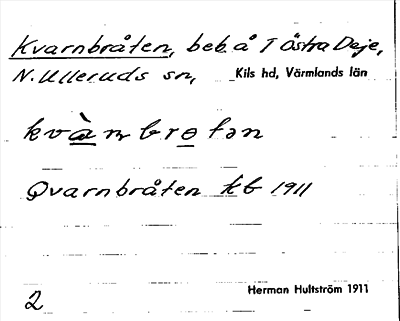 Kvarnbråten, beb. å 1 Östra Deje,
N. Ulleruds sn, Kils hd, Värmlands län
kvàrnbrotən
Qvarnbråten kb 1911
Herman Hultström 1911
2